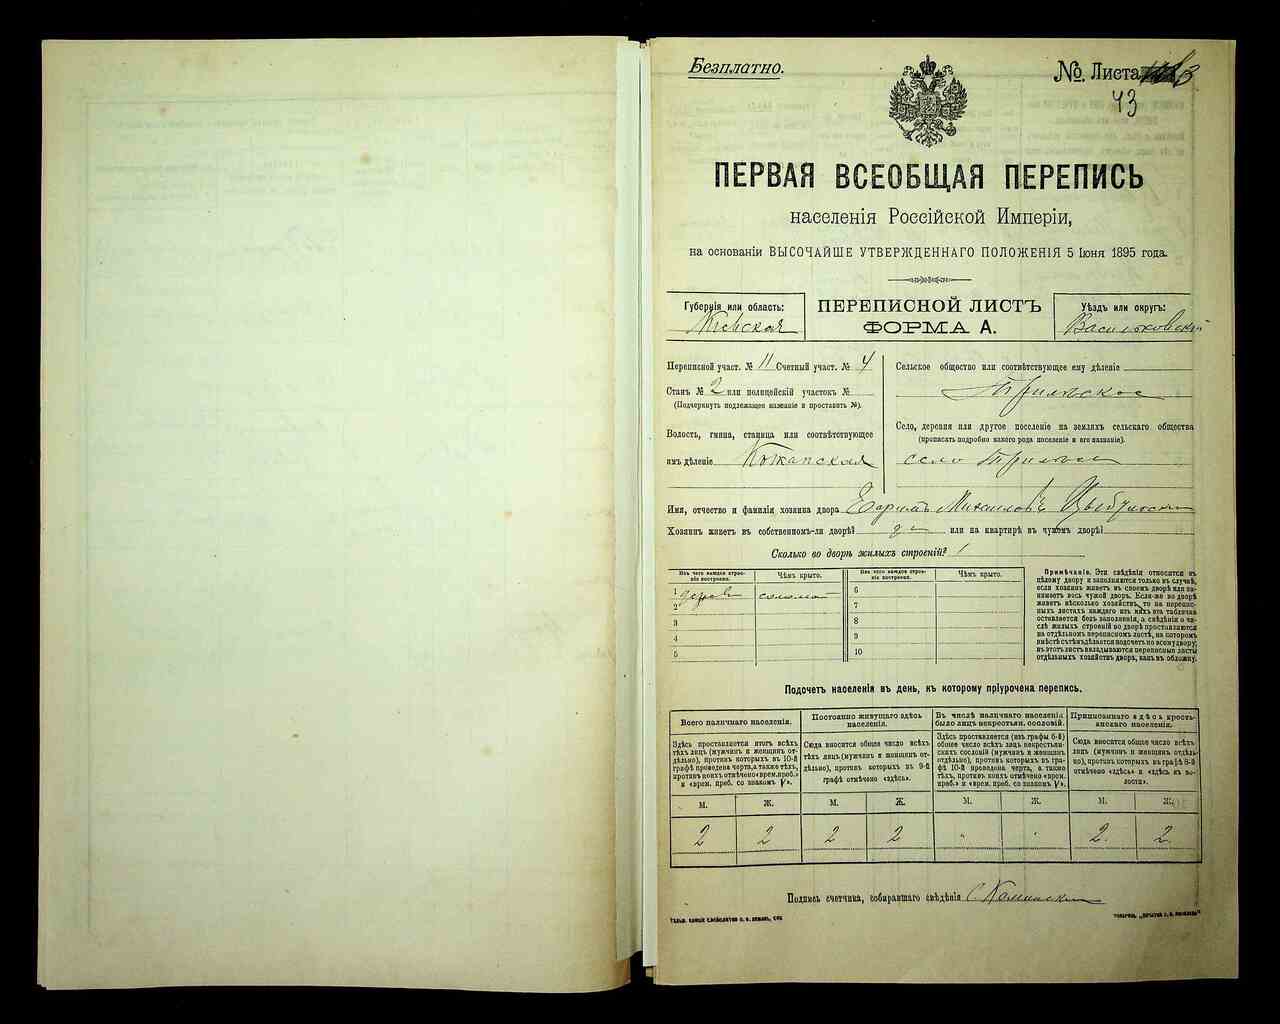 Безплатно.
№ Листа
43
ПЕРВАЯ ВСЕОБЩАЯ ПЕРЕПИСЬ
населенія Россійской Имперіи,
на основаніи ВЫСОЧАЙШЕ УТВЕРЖДЕННАГО ПОЛОЖЕНІЯ 5 Іюня 1895 года.
Губернія или область:
Кіевская
ПЕРЕПИСНОЙ ЛИСТЪ
ФОРМА А.
Уѣздъ или округъ:
Васильковскій
Переписной участ. № 11 Счетный участ. № 4
Станъ № 2 или полицейскій участокъ №
(Подчеркнуть подлежащее названіе и проставить №).
Волость, гмина, станица или соотвѣтствующее
имъ дѣленіе Кожанская
Сельское общество или соотвѣтствующее ему дѣленіе
Трилѣсское
Село, деревня или другое поселеніе на земляхъ сельскаго общества
(прописать подробно какого рода поселеніе и его названіе).
село Трилѣсы
Имя, отчество и фамилія хозяина двора Ефримъ Михаиловъ
Хозяинъ живетъ въ собственномъ-ли дворѣ? да или на квартирѣ въ чужомъ дворѣ?
Сколько во дворѣ жилыхъ строеній? 1
Изъ чего каждое строеніе построено.
Чѣмъ крыто.
Изъ чего каждое строеніе построено.
Чѣмъ крыто.
1 дерев соломой
2
3
4
5
6
7
8
9
10
Примѣчаніе. Эти свѣдѣнія относятся къ
цѣлому двору и заполняются только въ случаѣ,
если хозяинъ живетъ въ своемъ дворѣ или занимаетъ весь чужой дворъ. Если-же во дворѣ
живетъ нѣсколько хозяйствъ, то на переписныхъ листахъ каждаго изъ нихъ эта табличка
оставляется безъ заполненія, а свѣдѣнія о числѣ жилыхъ строеній во дворѣ проставляются
на отдѣльномъ переписномъ листѣ, на которомъ
вмѣстѣ съ тѣмъ дѣлается подсчетъ по всему двору;
въ этотъ листъ вкладываются переписные листы
отдѣльныхъ хозяйствъ двора, какъ въ обложку.
Подсчетъ населенія въ день, къ которому пріурочена перепись.
Всего наличнаго населенія.
Постоянно живущаго здѣсь населенія.
Въ числѣ наличнаго населенія было лицъ некрестьян. сословій.
Приписаннаго здѣсь крестьянскаго населенія.
Здѣсь проставляется итогъ всѣхъ
тѣхъ лицъ (мужчинъ и женщинъ отдѣльно), противъ которыхъ въ 10-й
графѣ проведена черта, а также тѣхъ,
противъ коихъ отмѣчено «врем. преб.»
и «врем. преб. со знакомъ V».
Сюда вносится общее число всѣхъ
тѣхъ лицъ (мужчинъ и женщинъ отдѣльно), противъ которыхъ въ 9-й
графѣ отмѣчено «здѣсь».
Здѣсь проставляется (изъ графы 6-й)
общее число всѣхъ лицъ некрестьянскихъ сословій (мужчинъ и женщинъ
отдѣльно), противъ которыхъ въ графѣ 10-й проведена черта, а также
тѣхъ, противъ коихъ отмѣчено «врем.
преб.» и «врем. преб. со знакомъ V».
Сюда вносится общее число всѣхъ
лицъ (мужчинъ и женщинъ отдѣльно), противъ которыхъ въ графѣ 8-й
отмѣчено «здѣсь» и «здѣсь въ волости».
М. Ж. М. Ж. М. Ж. М. Ж.
2 2 2 2 " " 2 2
Подпись счетчика, собиравшаго свѣдѣнія